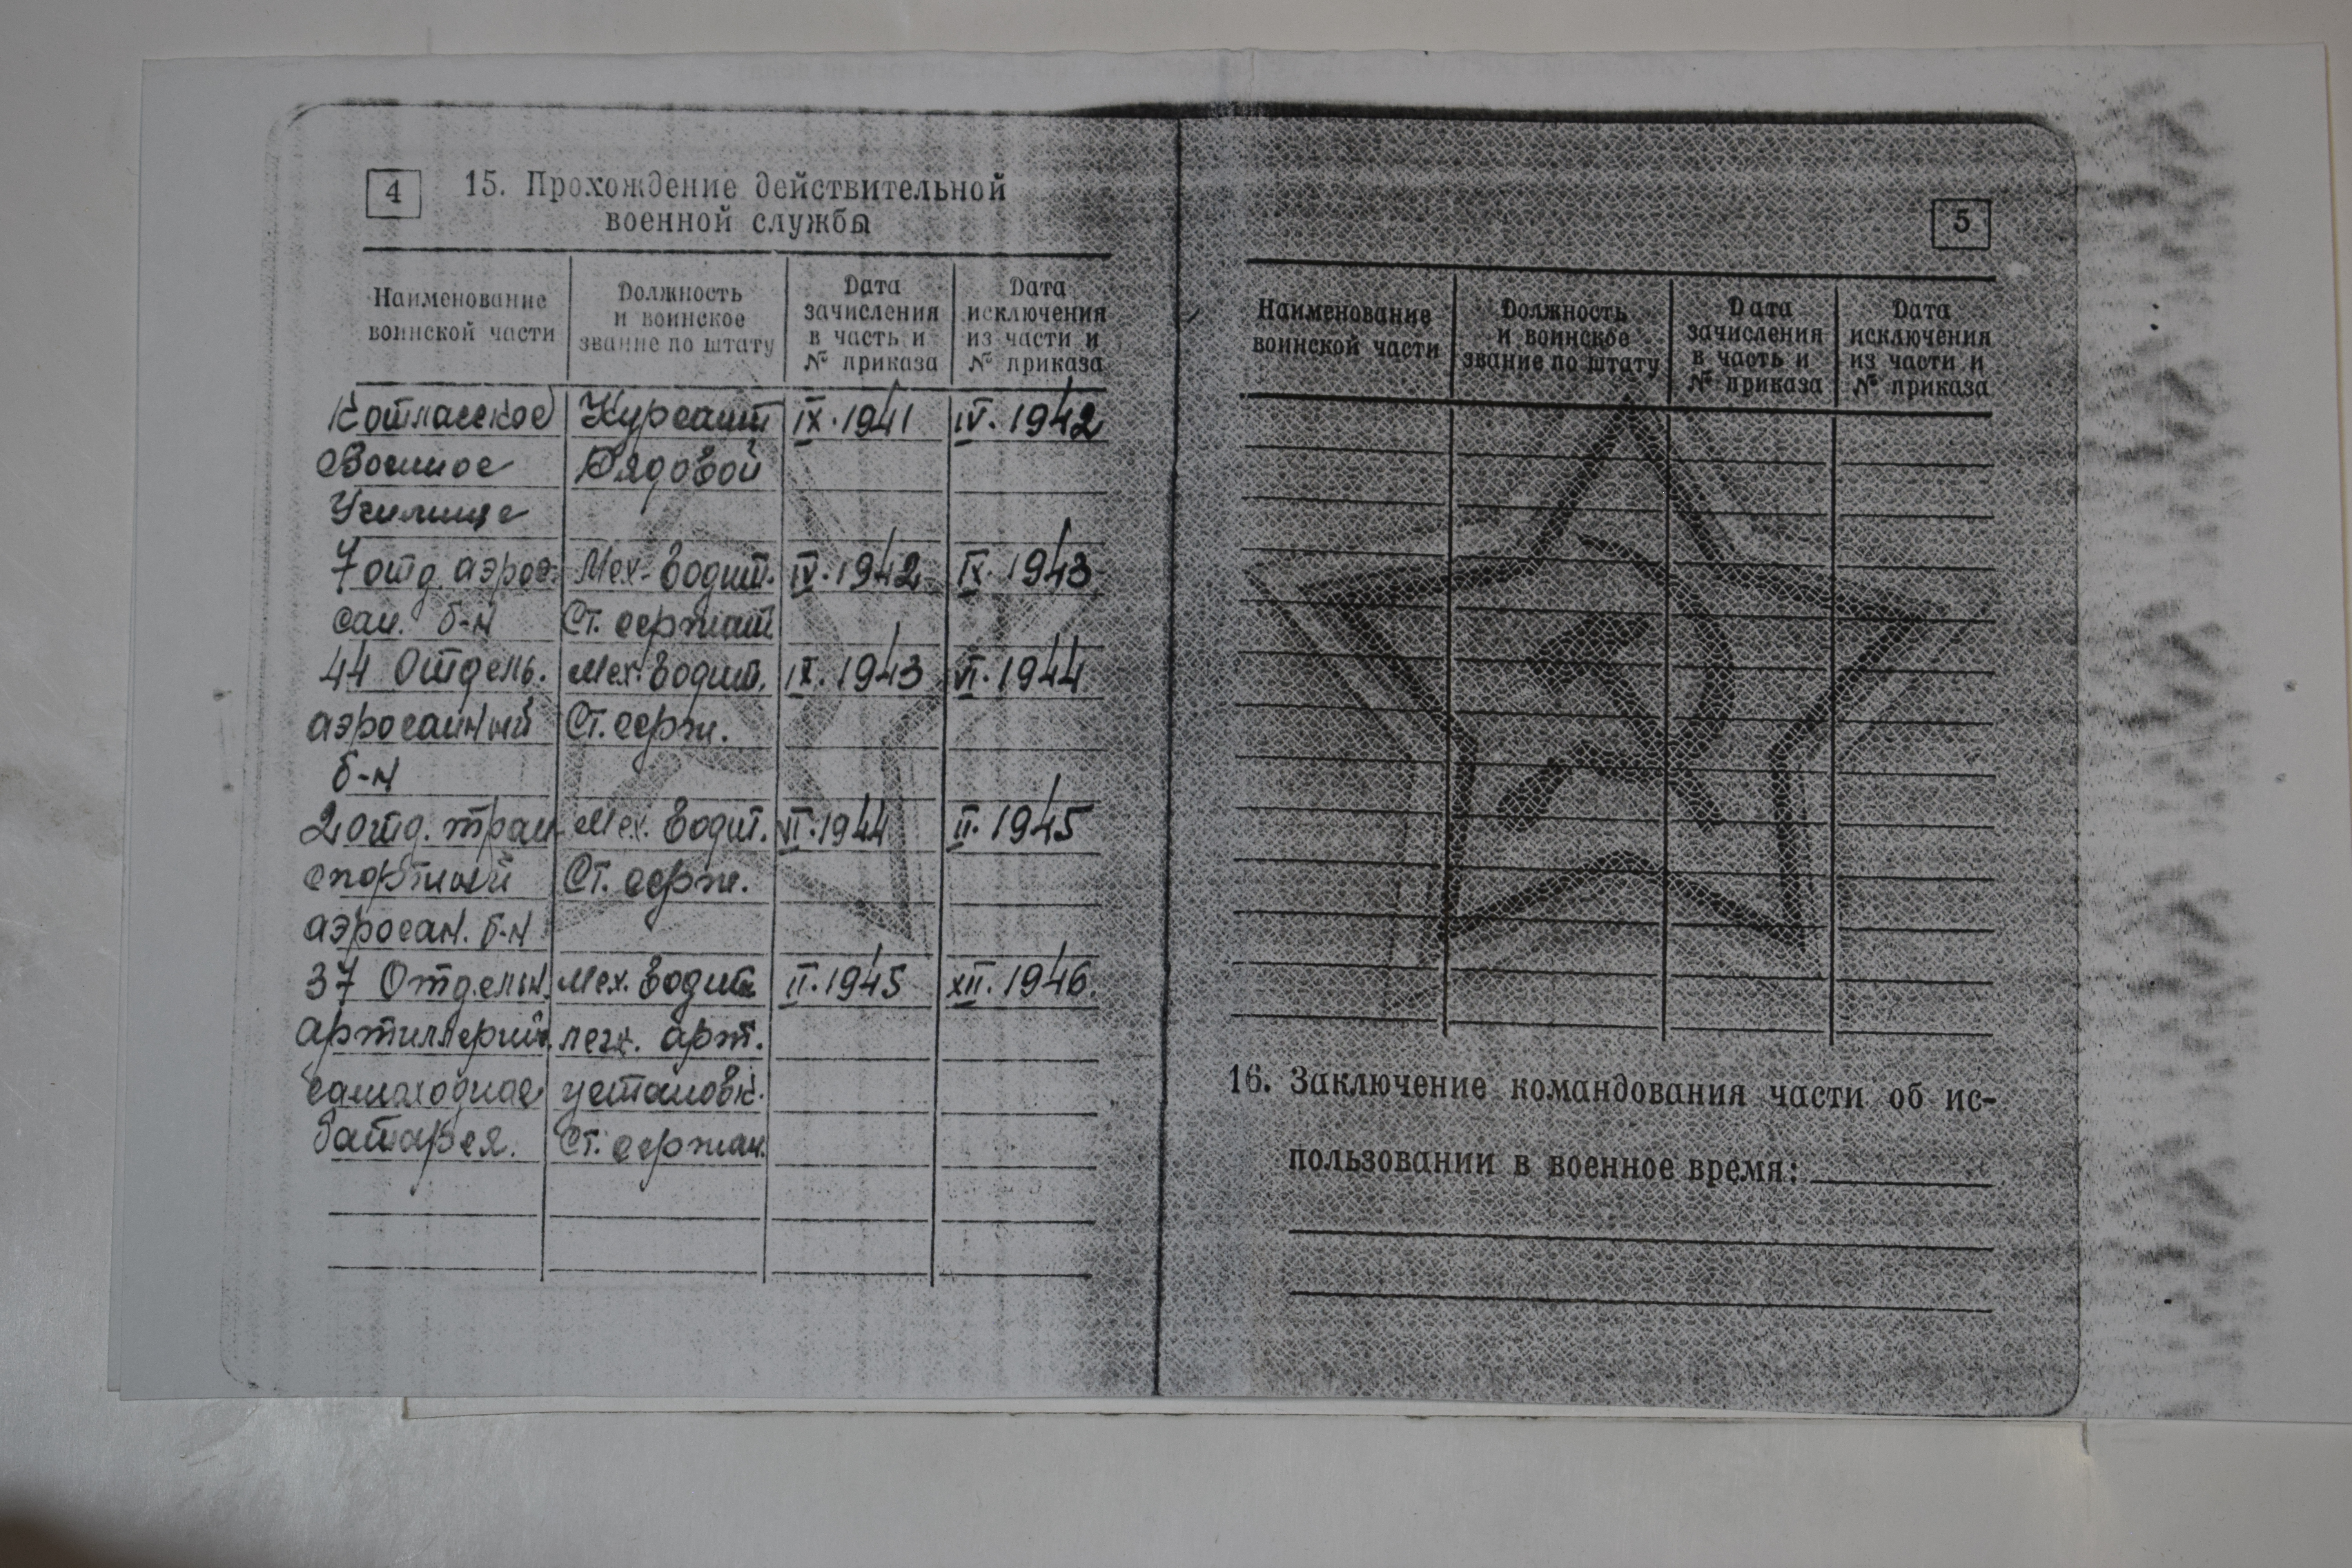 4
15. Прохождение действительной
военной службы
Наименование
воинской части
Должность
и воинское
звание по штату
Дата
зачисления
в часть и
№ приказа
Дата
исключения
из части и
№ приказа
Котласское Курсант IX.1941 IV.1942
Военное Рядовой
Училище
7 отд. аэрос. Мех-водит. IV.1942 IX.1943
сан. б-н Ст. сержант
44 Отдель. Мех-водит. IX.1943 VI.1944
аэросанный Ст. серж.
б-н
2 отд. тран Мех. водит. VI.1944 II.1945
спортный Ст. серж.
аэросан. б-н
37 Отдельн. Мех. водит. II.1945 XII.1946.
артиллерий. легк. арт.
самоходная установк.
батарея. Ст. сержан.
5
Наименование
воинской части
Должность
и воинское
звание по штату
Дата
зачисления
в часть и
№ приказа
Дата
исключения
из части и
№ приказа
16. Заключение командования части об ис-
пользовании в военное время: